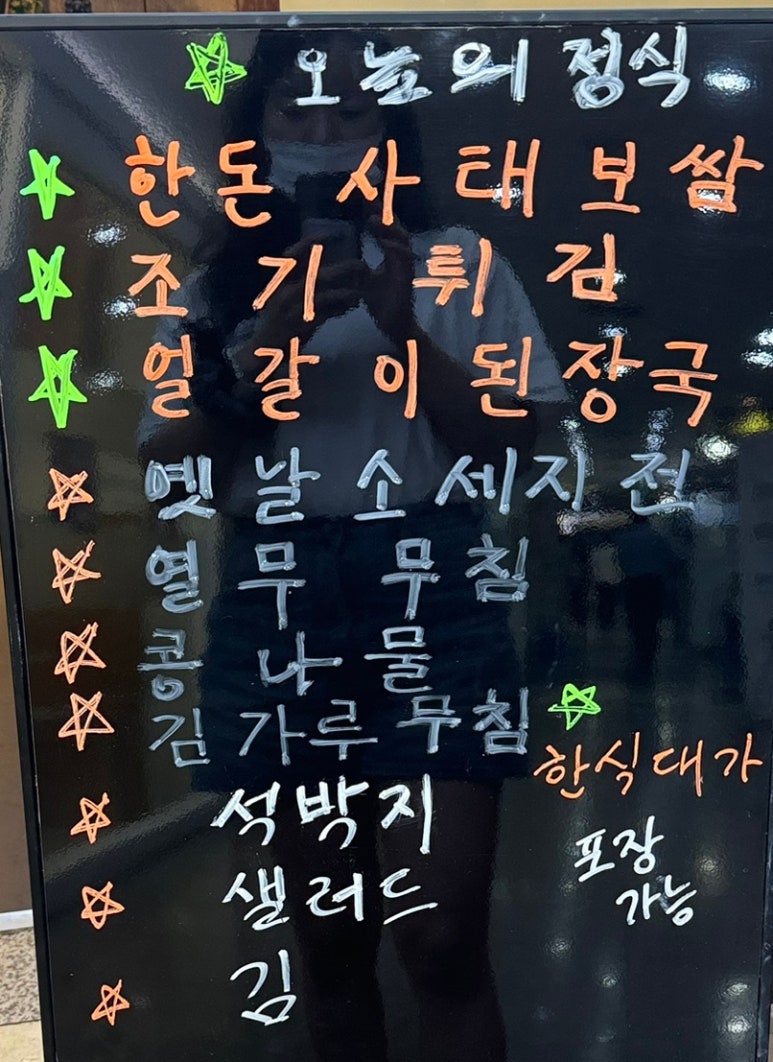 오늘의 정식
한돈 사태 보쌈
조기 튀김
얼갈이 된장국
옛날 소세지 전
열무 무침
콩나물
김가루 무침
석박지
샐러드
김
한식대가
포장
가능